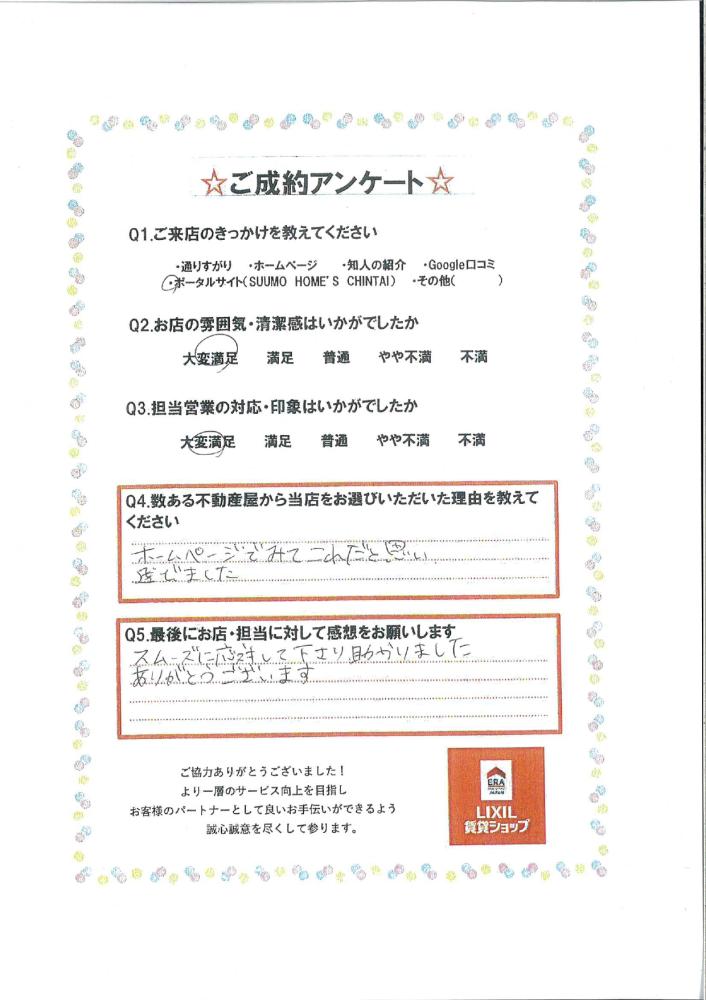 ☆ご成約アンケート☆
Q1.ご来店のきっかけを教えてください
・通りすがり ・ホームページ ・知人の紹介 ・Google口コミ
・ポータルサイト(SUUMO HOME'S CHINTAI) ・その他( )
Q2.お店の雰囲気・清潔感はいかがでしたか
大変満足 満足 普通 やや不満 不満
Q3.担当営業の対応・印象はいかがでしたか
大変満足 満足 普通 やや不満 不満
Q4.数ある不動産屋から当店をお選びいただいた理由を教えて
ください
ホームページでみてこれだと思い
選びました
Q5.最後にお店・担当に対して感想をお願いします
スムーズに応対して下さり助かりました
ありがとうございます
ご協力ありがとうございました！
より一層のサービス向上を目指し
お客様のパートナーとして良いお手伝いができるよう
誠心誠意を尽くして参ります。
ERA
JAPAN
LIXIL
賃貸ショップ